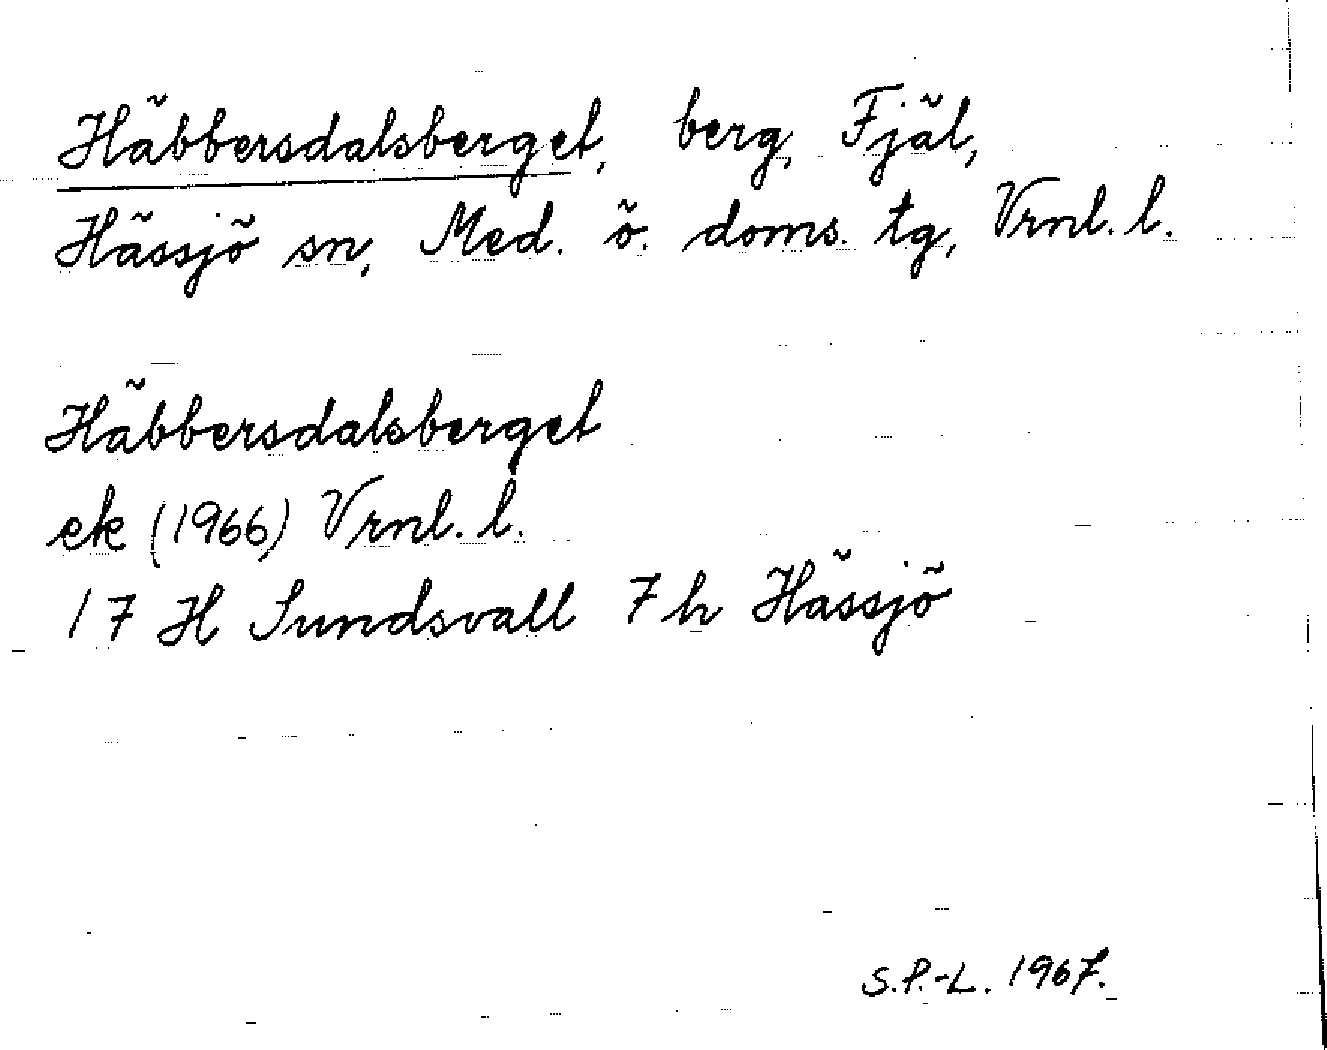 Häbbersdalsberget, berg, Fjäl,
Hässjö sn, Med. ö. doms. tg, Vrnl. l.
Häbbersdalsberget
ek (1966) Vrnl. l.
17 H Sundsvall 7 h Hässjö
S.P.-L. 1967.